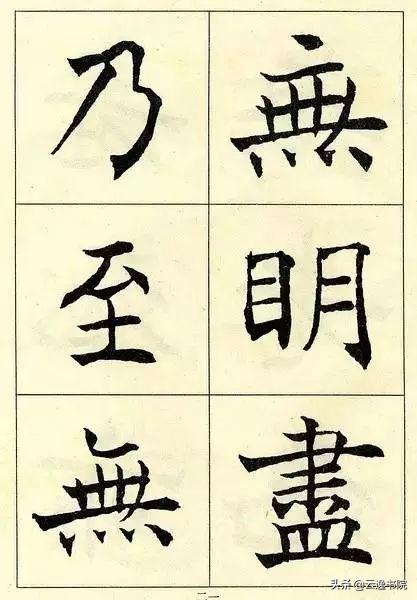 無眀盡
乃至無
二一
头条@云逸书院